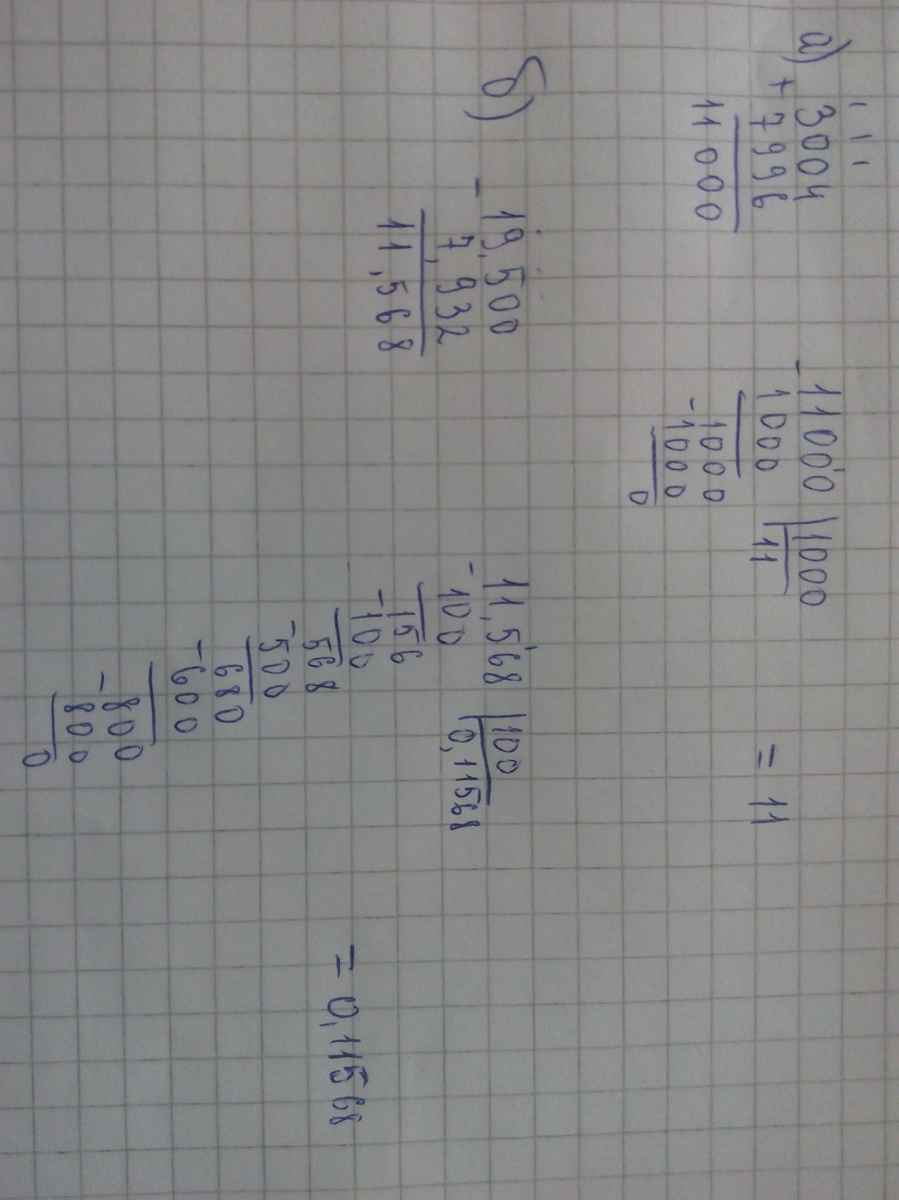 а) + 3004
7996
11000
- 11000 | 1000
1000 | 11
- 1000
1000
0
= 11
б) - 19,500
7,932
11,568
- 11,568 | 100
100 | 0,11568
156
- 100
568
- 500
680
- 600
800
- 800
0
= 0,11568